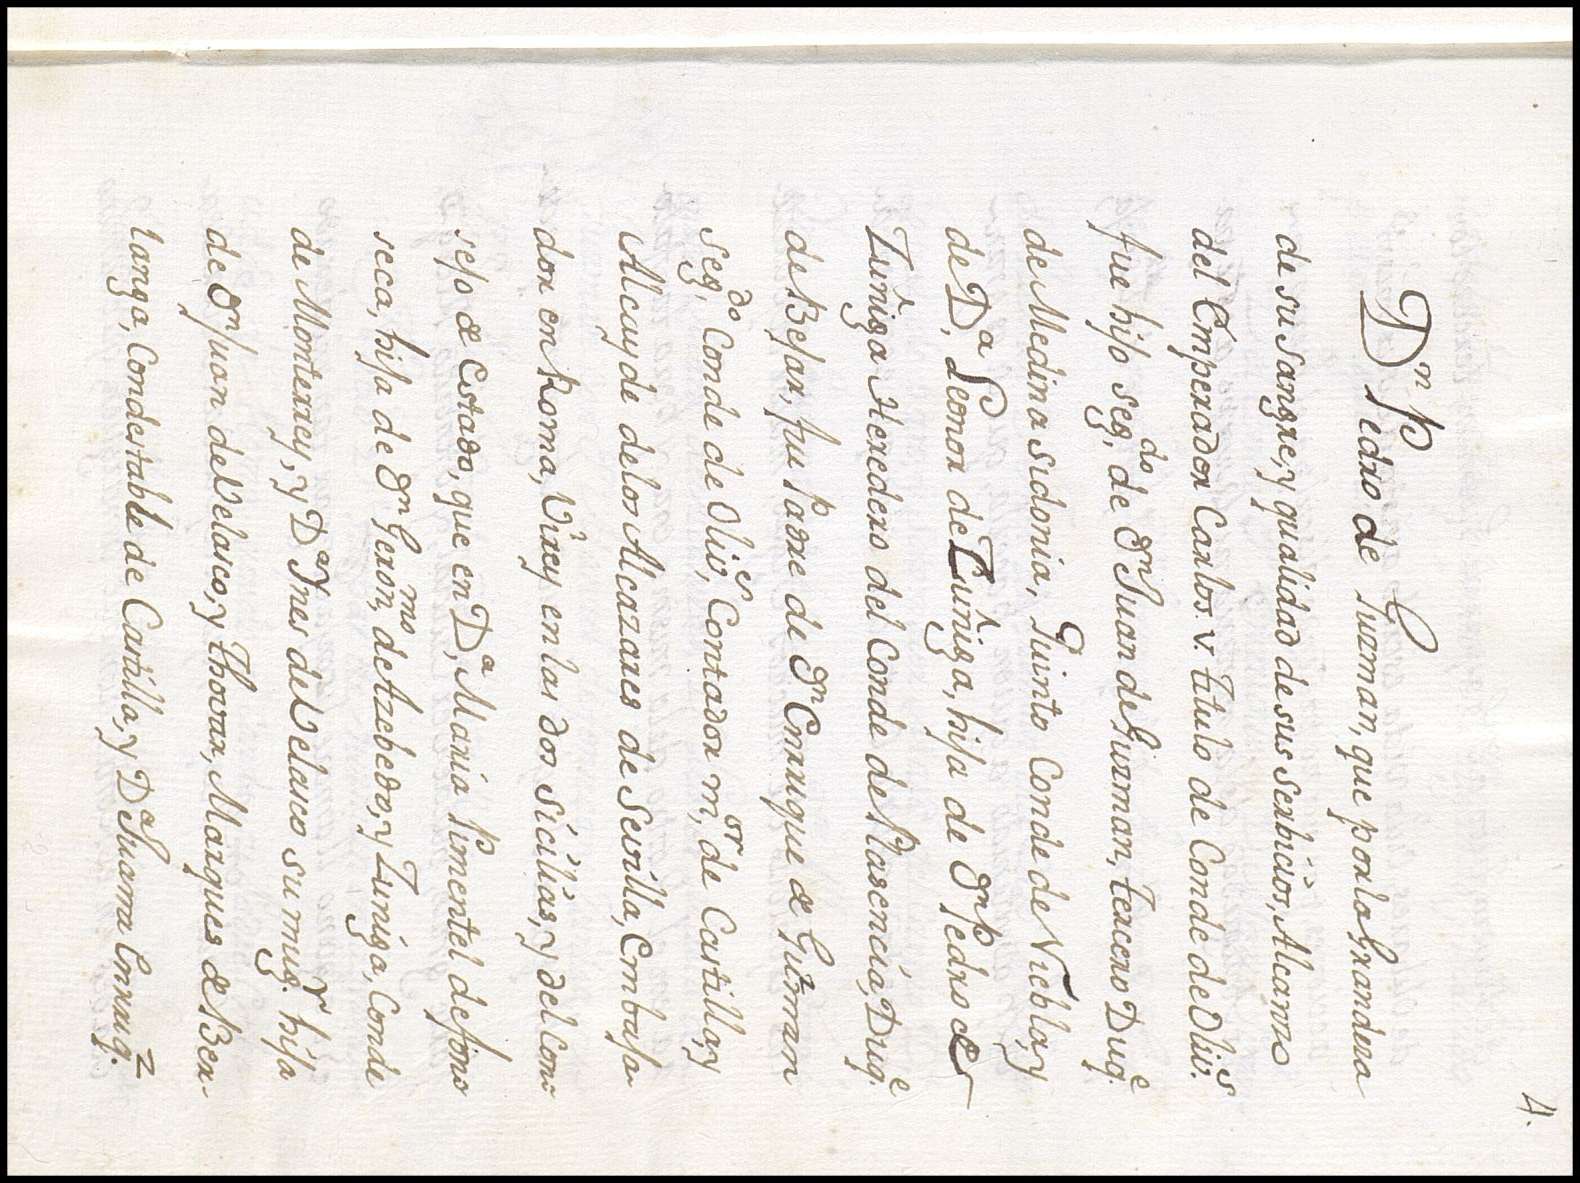 4.
Dⁿ Pedro de Guzman, que por la Grandeza
de su sangre, y qualidad de sus serbicios, Alcanzo
del Emperador Carlos. V. titulo de Conde de Olivˢ.
fue hijo segᵈᵒ, de Dⁿ Juan de Guzman, tercero Duqᵉ.
de Medina sidonia, Quinto Conde de Niebla, y
de Dᵃ, Leonor de Zuñiga, hija de Dⁿ Pedro de
Zuñiga Heredero del Conde de Plasencia, Duqᵉ.
de Bejar, fue Padre de Dⁿ Enrrique de Guzman
segᵈᵒ, Conde de Olivᵉˢ, Contador mᵒʳ, de Castilla, y
Alcayde delos Alcazares de Sevilla, Embaja-
dor en Roma, Virey en las dos Sicilias, y del Con-
sejo de Estado, que en Dᵃ, Maria Pimentel de fons
seca, hija de Dⁿ Geronᵐᵒ, de Azebedo, y Zuniga, Conde
de Monterrey, y Dᵃ Ynes de Velasco su mugʳ. hija
de Dⁿ Juan de Velasco, y Thovar, Marques de Ber-
langa, Condestable de Castilla, y Dᵃ Juana Enrriqᶻ.